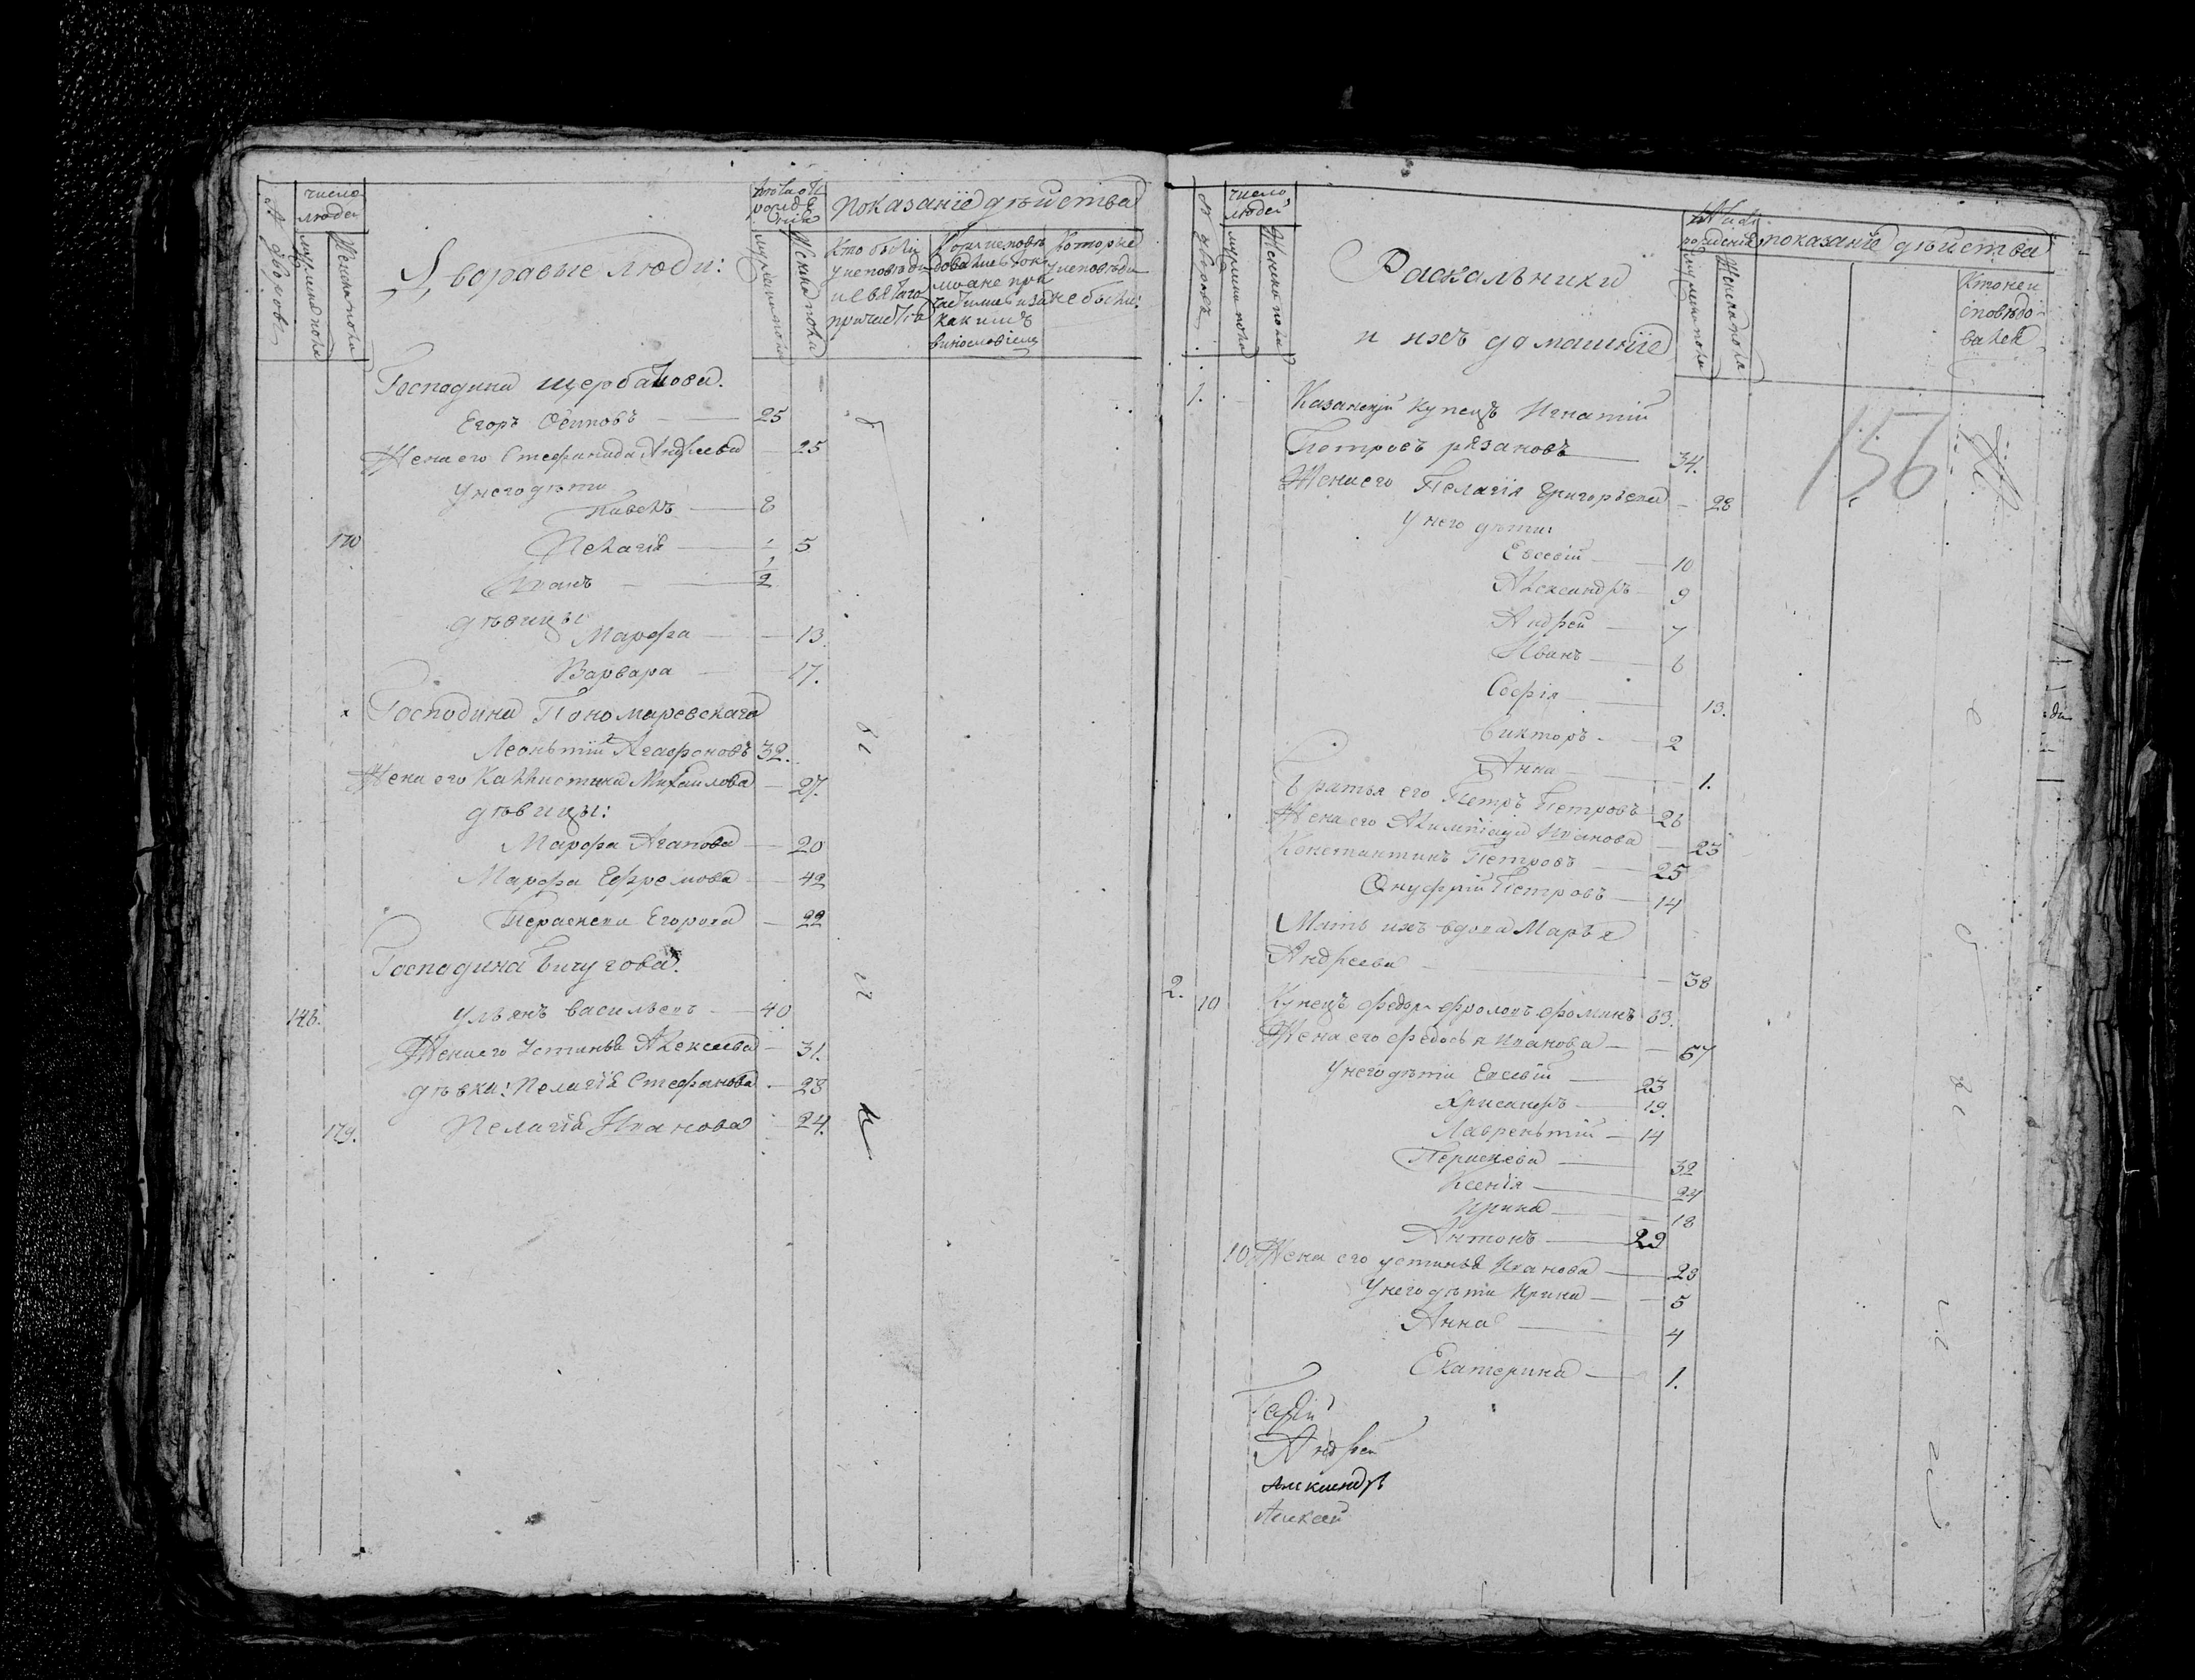 № дворовъ
число людей
мужеска пола
Женска пола
Дворовые люди:
лѣта отъ рождѣнія
мужеска пола
Женска пола
показаніе дѣйства
Кто были у исповѣди и святаго причастія
Которые у исповѣди не были:
Господина Щербакова.
Егоръ Осиповъ — 25
Жена его Стефанида Андреева — 25
У него дѣти
Павелъ — 8
170 Пелагія — 5
Иванъ — 1/2
дѣвицы
Марфа — 13
Варвара — 17.
Господина Пономаревскаго
Леонътій Агафоновъ 32.
Жена его Каллистина Михаилова — 27.
дѣвицы:
Марфа Агапова — 20
Марфа Ефремова — 42
Параскева Егорова — 22
Господина Бичугова.
148. Ульянъ васильевъ — 40
Жена его Устинья Алексеева — 31.
дѣвки: Пелагія Стефанова — 28
179. Пелагія Иванова — 24.
число людей
мужеска пола
Женска пола
Раскальники
и ихъ домашніе
рожденія
мужеска пола
Женска пола
показаніе дѣйства
Кто не исповѣдовалси
156
1. Казанскій купецъ Игнатій
Петровъ рязановъ — 34.
Жена его Пелагія Григорьева — 28
У него дѣти:
Евсевій — 10
Александръ — 9
Андрей — 7
Иванъ — 6
Софія — 13.
Викторъ — 2
Анна — 1.
Братья его Петръ Петровъ — 26
Жена его Алимпіада Иванова — 23
Константинъ Петровъ — 25
Онуфрій Петровъ — 14
Мать ихъ вдова Марья
Андреева — 38
2. 10 Купецъ Федоръ Фроловъ Фоминъ 63.
Жена его Федосья Иванова — 57
У него дѣти Евсевій — 23
Хрисанфъ — 19.
Лавренътій — 14
Параскева — 32
Ксенія — 24
Ирина — 18
Антонъ — 29
10 Жена его устинья Иванова — 28
У него дѣти Ирина — 5
Анна — 4
Екатерина — 1.
Андрей
Александръ
Алексей